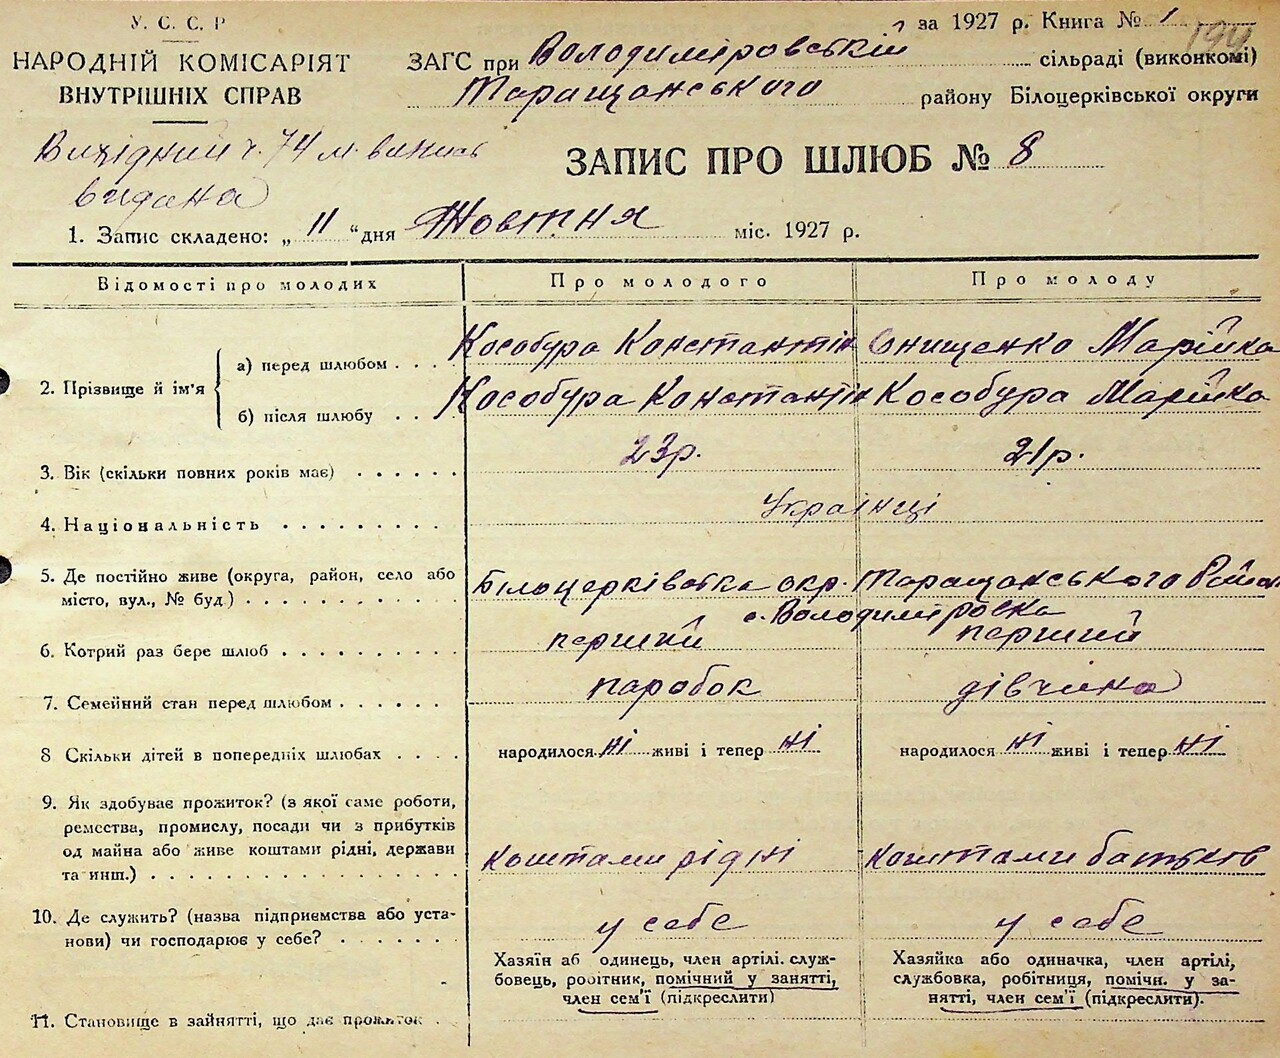 У. С. С. Р
НАРОДНІЙ КОМІСАРІЯТ
ВНУТРІШНІХ СПРАВ
за 1927 р. Книга № 1
ЗАГС при Володимировській сільраді (виконкомі)
Таращанського району Білоцерківської округи
Вихідний ч. 74 м. випись
видана
ЗАПИС ПРО ШЛЮБ № 8
1. Запис складено: „ 11 “ дня Жовтня міс. 1927 р.
Відомості про молодих
Про молодого
Про молоду
2. Прізвище й ім’я
а) перед шлюбом . . . .
Кособура Константін
Онищенко Марійка
б) після шлюбу . . .
Кособура Константін
Кособура Марійка
3. Вік (скільки повних років має) . . . . . .
23р.
21р.
4. Національність . . . . . . . . . .
Українці
5. Де постійно живе (округа, район, село або
місто, вул., № буд.) . . . . . . . . . . . .
Білоцерківська окр. Таращанського Район
с. Володимировка
6. Котрий раз бере шлюб . . . . . . . . . .
перший
перший
7. Семейний стан перед шлюбом . . . . . .
паробок
дівчина
8 Скільки дітей в попередніх шлюбах . . . .
народилося ні живі і тепер ні
народилося ні живі і тепер ні
9. Як здобуває прожиток? (з якої саме роботи,
ремества, промислу, посади чи з прибутків
од майна або живе коштами рідні, держави
та инш.) . . . . . . . . . . . . . . . . . .
коштами рідні
коштами батьков
10. Де служить? (назва підприємства або уста-
нови) чи господарює у себе? . . . . . . .
у себе
у себе
Хазяїн аб одинець, член артілі. служ-
бовець, робітник, помічний у занятті,
член сем’ї (підкреслити)
Хазяйка або одиначка, член артілі,
службовка, робітниця, помічн. у за-
нятті, член сем’ї (підкреслити).
11. Становище в зайнятті, що дає прожиток .